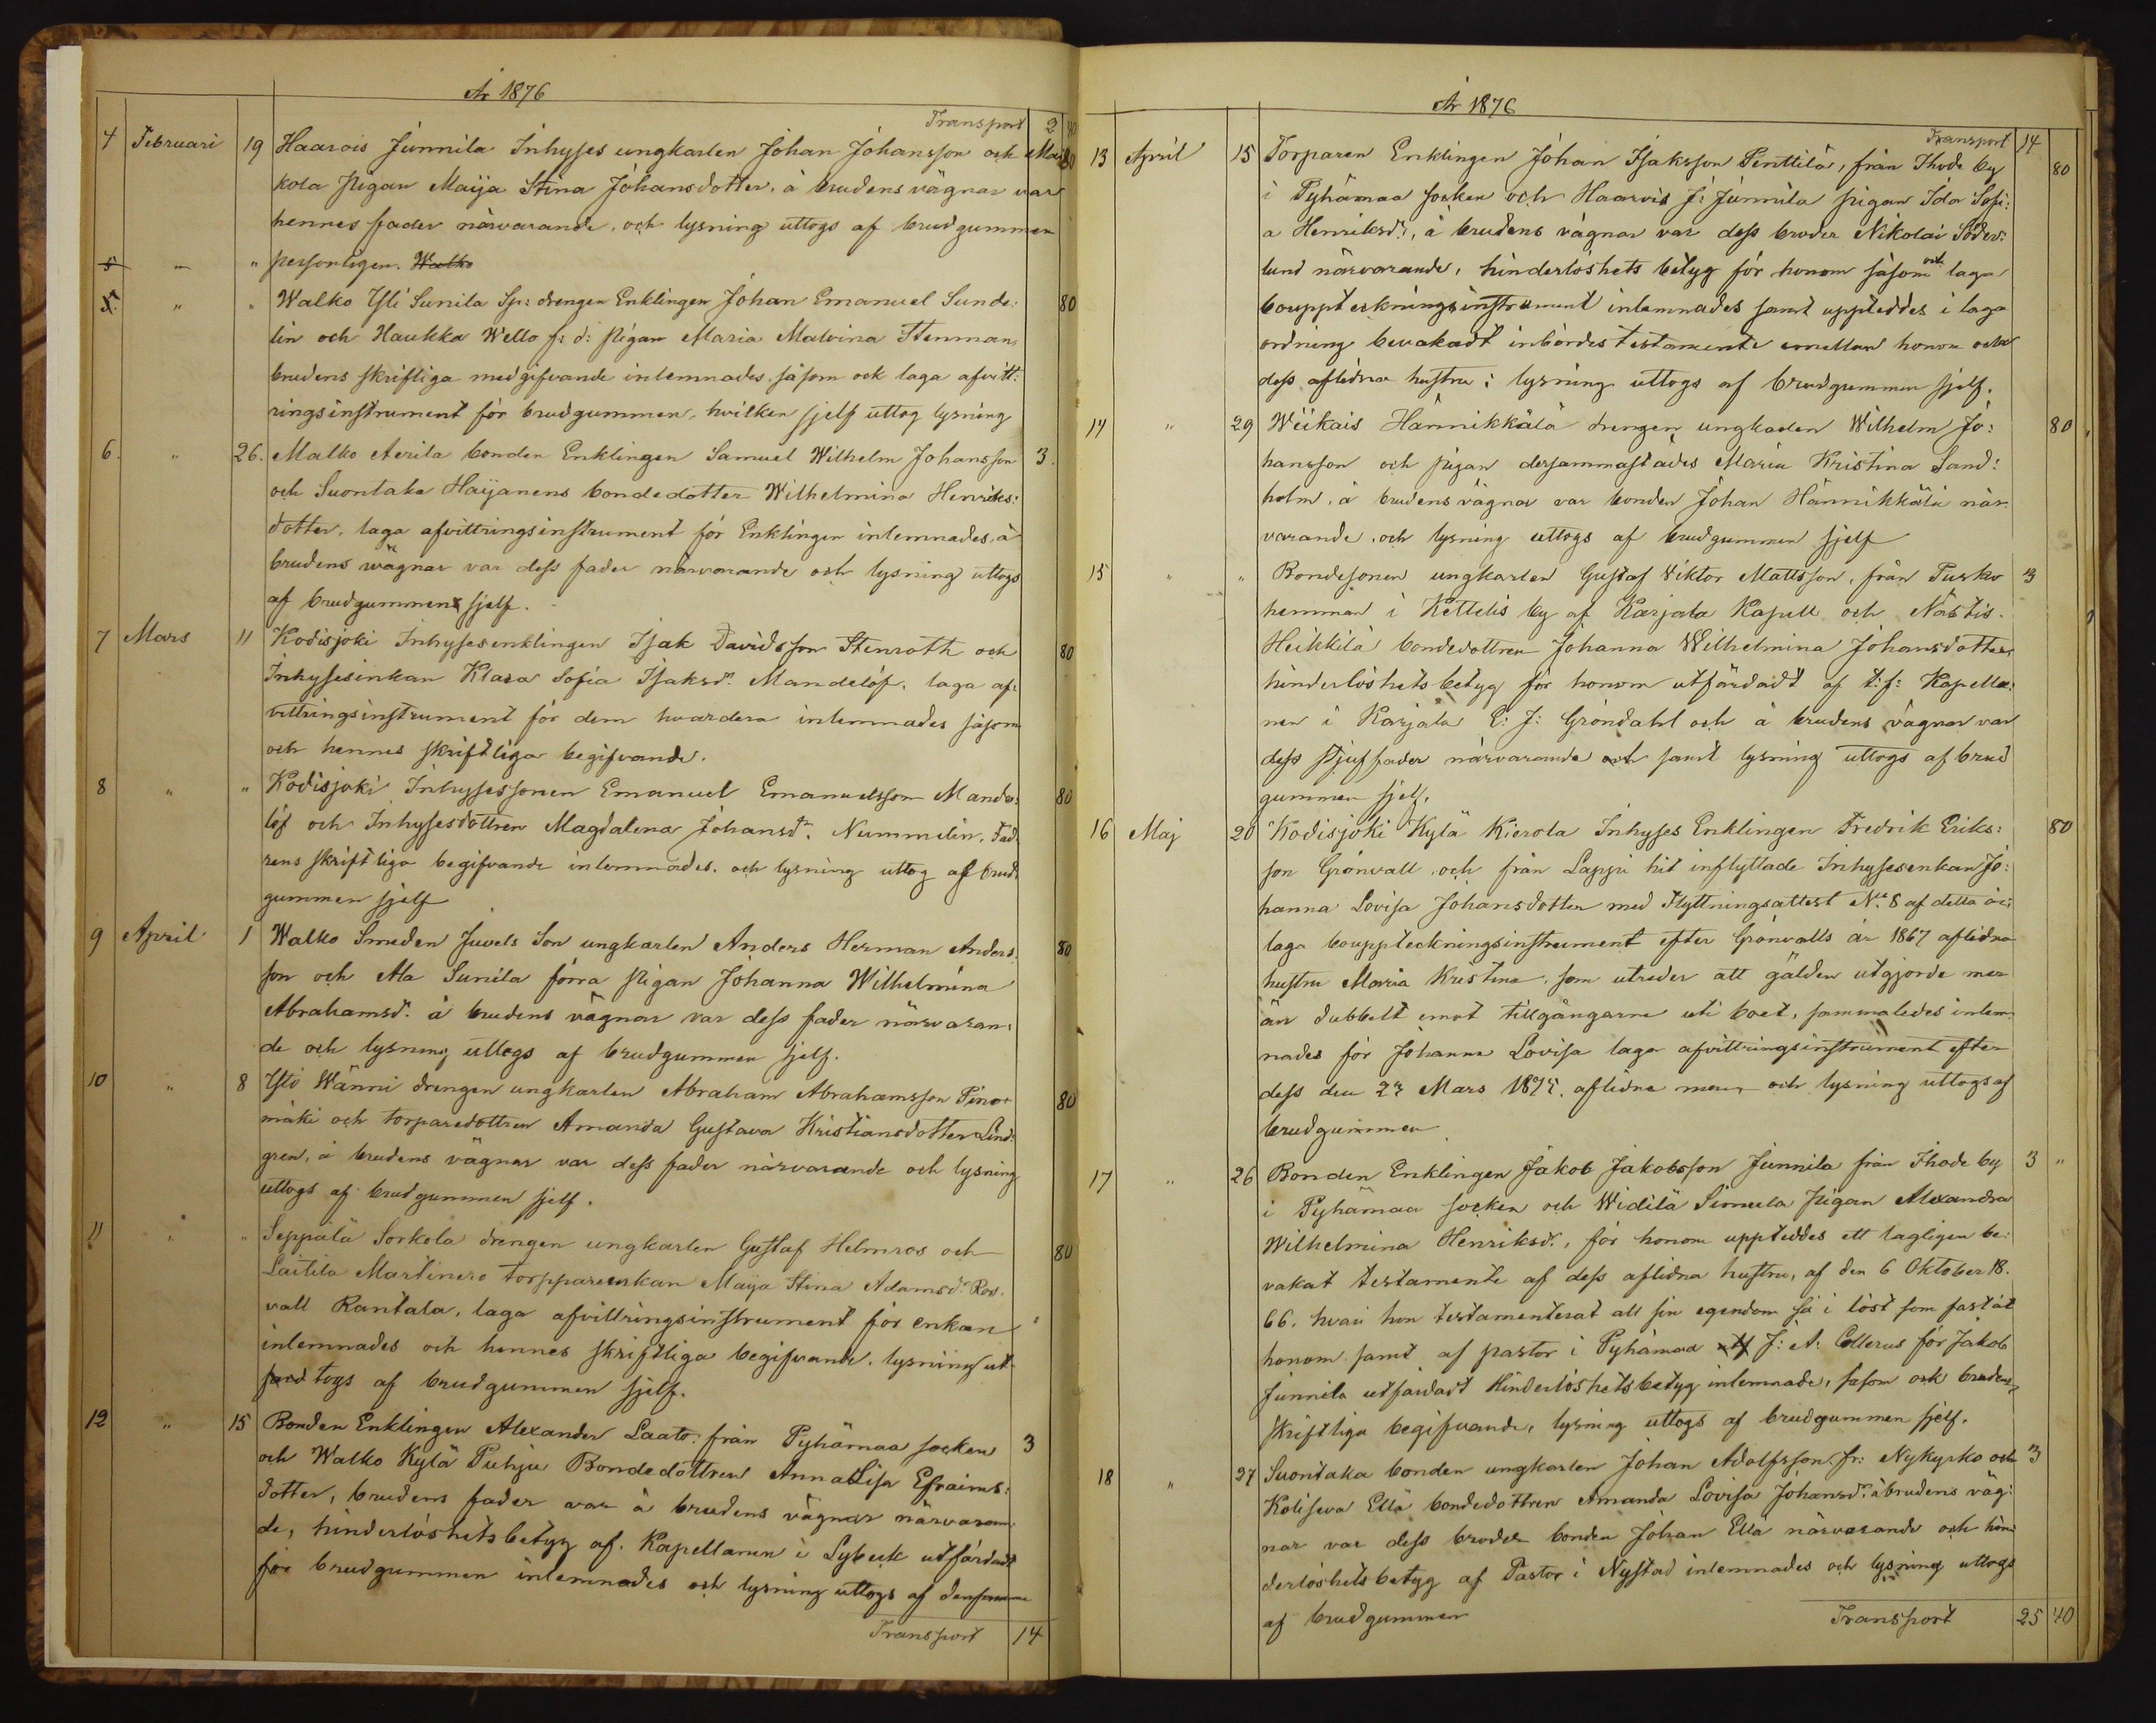 År 1876
Transport 2 40
4 Februari 19 Haarois Junnila Inhyses ungkarlen Johan Johansson och Mar 80
kola pigan Maija Stina Johansdotter, å brudens vägnar var
hennes fader närvarande, och lysning uttogs af brudgummen
5 " " personligen. Walko
5. " " Walko Yli Sunila Sp: drengen Enklingen Johan Emanuel Sunde: 80
lin och Haukka Wello f: d: pigan Maria Malvina Stenman,
brudens skrifliga medgifvande inlemnades såsom ock laga afvitt:
ringsinstrument för brudgummen, hvilken sjelf uttog lysning
6. " 26. Malko Aerila bonden Enklingen Samuel Wilhelm Johansson 3.
och Suontaka Haijanens bondedotter Wilhelmina Henriks:
dotter, laga afvittringsinstrument för Enklingen inlemnades, å
brudens wägnar var dess fader närvarande och lysning uttogs
af brudgummen sjelf.
7 Mars 11 Kodisjoki Inhysesenklingen Isak Davidsson Stenroth och 80
Inhysesinkan Klara Sofia Isaksdr. Mandelöf, laga af:
vittringsinstrument för dem hvardera inlemnades såsom
och hennes skriftliga begifvande.
8 " " Kodisjoki Inhysessonen Emanuel Emanuelsson Mande: 80
löf och Inhysesdottren Magdalena Johansdr. Nummelin, Fad:
rens skriftliga begifvande inlemnades. och lysning uttog af brud:
gummen sjelf
9 April 1 Walko Smeden Juvels Son ungkarlen Anders Herman Anders: 80
son och Ala Sunila förra pigan Johanna Wilhelmina
Abrahamsdr. å brudens vägnar var dess fader närvaran:
de och lysning uttogs af brudgummen sjelf.
10 " 8 Ylö Wänni drengen ungkarlen Abraham Abrahamsson Pino: 80
mäki och torparedottren Amanda Gustava Kristiansdotter Lind:
gren, å brudens vägnar var dess fader närvarande och lysning
uttogs af brudgummen sjelf.
11 " " Seppälä Sorkola drengen ungkarlen Gustaf Helmros och 80
Laitila Martinero torppareenkan Maija Stina Adamsdr. Ros:
vall Rantala, laga afvittringsinstrument för enkan
inlemnades och hennes skriftliga begifvande. lysning ut
togs af brudgummen sjelf.
12 " 15 Bonden Enklingen Alexander Laato från Pyhämaa socken 3
och Walko Kylä Puhju Bondedottren Anna Lisa Efraims:
dotter, brudens fader var å brudens vägnar närvaran:
de, hinderlöshetsbetyg af Kapellanen i Lybeck utfärdadt
för brudgummen inlemnades och lysning uttogs af densamme
Transport 14
År 1876
Transport 14
13 April 15 Torparen Enklingen Johan Isaksson Penttilä, från Ihode by 80
i Pyhämaa socken och Haarois J: Junnila pigan Ida Sofi:
a Henriksdr., å brudens vägnar var dess broder Nikolai Söder:
lund närvarande, hinderlöshets betyg för honom såsom ock laga
bouppteckningsinstrument inlemnades samt uppteddes i laga
ordning bevakadt inbördes testamente emellan honom och
dess aflidna hustru: lysning uttogs af brudgummen sjelf.
14 " 29 Weikais Hännikkälä drengen ungkarlen Wilhelm Jo: 80
hansson och pigan dersammastädes Maria Kristina Sand:
holm, å brudens vägnar var bonden Johan Hännikkälä när:
varande, och lysning uttogs af brudgummen sjelf
15 " " Bondesonen ungkarlen Gustaf Viktor Mattsson, från Tusko 3
hemman i Kettelis by af Karjala Kapell och Nästis.
Heikkilä bondedottren Johanna Wilhelmina Johansdotter,
hinderlöshetsbetyg för honom utfärdadt af t: f: Kapella:
nen i Karjala E: J: Gröndahl och å brudens vägnar var
dess stjuffader närvarande och samt lysning uttogs af brud
gummen sjelf.
16 Maj 20 Kodisjoki Kylä Kierola Inhyses Enklingen Fredrik Eriks: 80
son Grönvall, och från Lappi hit inflyttade Inhysesenkan Jo:
hanna Lovisa Johansdotter med Flyttningsattest No. 8 af detta år:
laga bouppteckningsinstrument efter Grönvalls år 1867 aflidna
hustru Maria Kristina, som utreder att gälden utgjorde mer
än dubbelt emot tillgångarne uti boet, sammaledes inlem:
nades för Johanna Lovisa laga afvittringsinstrument efter
dess den 23 Mars 1875. aflidne man, och lysning uttogs af
brudgummen
17 " 26 Bonden Enklingen Jakob Jakobsson Junnila från Ihode by 3 "
i Pyhämaa socken och Widilä Simula pigan Alexandra
Wilhelmina Henriksdr., för honom uppteddes ett lagligen be:
vakat testamente af dess aflidna hustru, af den 6 Oktober 18.
66. hvari hon testamenterat all sin egendom så i löst som fast åt
honom samt af pastor i Pyhämaa J: A: Cellerus för Jakob
Junnila utfärdadt Hinderlöshetsbetyg inlemnade, såsom ock brudens
skriftliga begifvande, lysning uttogs af brudgummen sjelf.
18 " 27 Suontaka bonden ungkarlen Johan Adolfsson fr: Nykyrko och 3
Kaliseva Ellä bondedottren Amanda Lovisa Johansdr. å brudens väg:
nar var dess broder bonden Johan Ella närvarande och hin:
derlöshetsbetyg af Pastor i Nystad inlemnades och lysning uttogs
af brudgummen
Transport 25 40